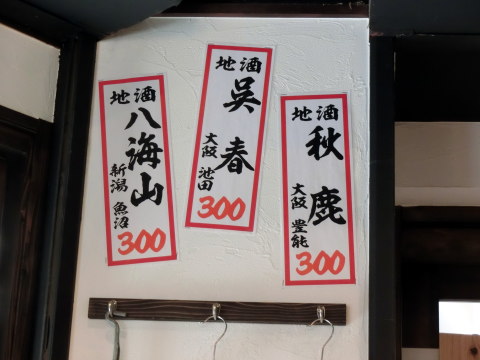 地酒
八海山
新潟 魚沼
300
地酒
呉春
大阪 池田
300
地酒
秋鹿
大阪 豊能
300